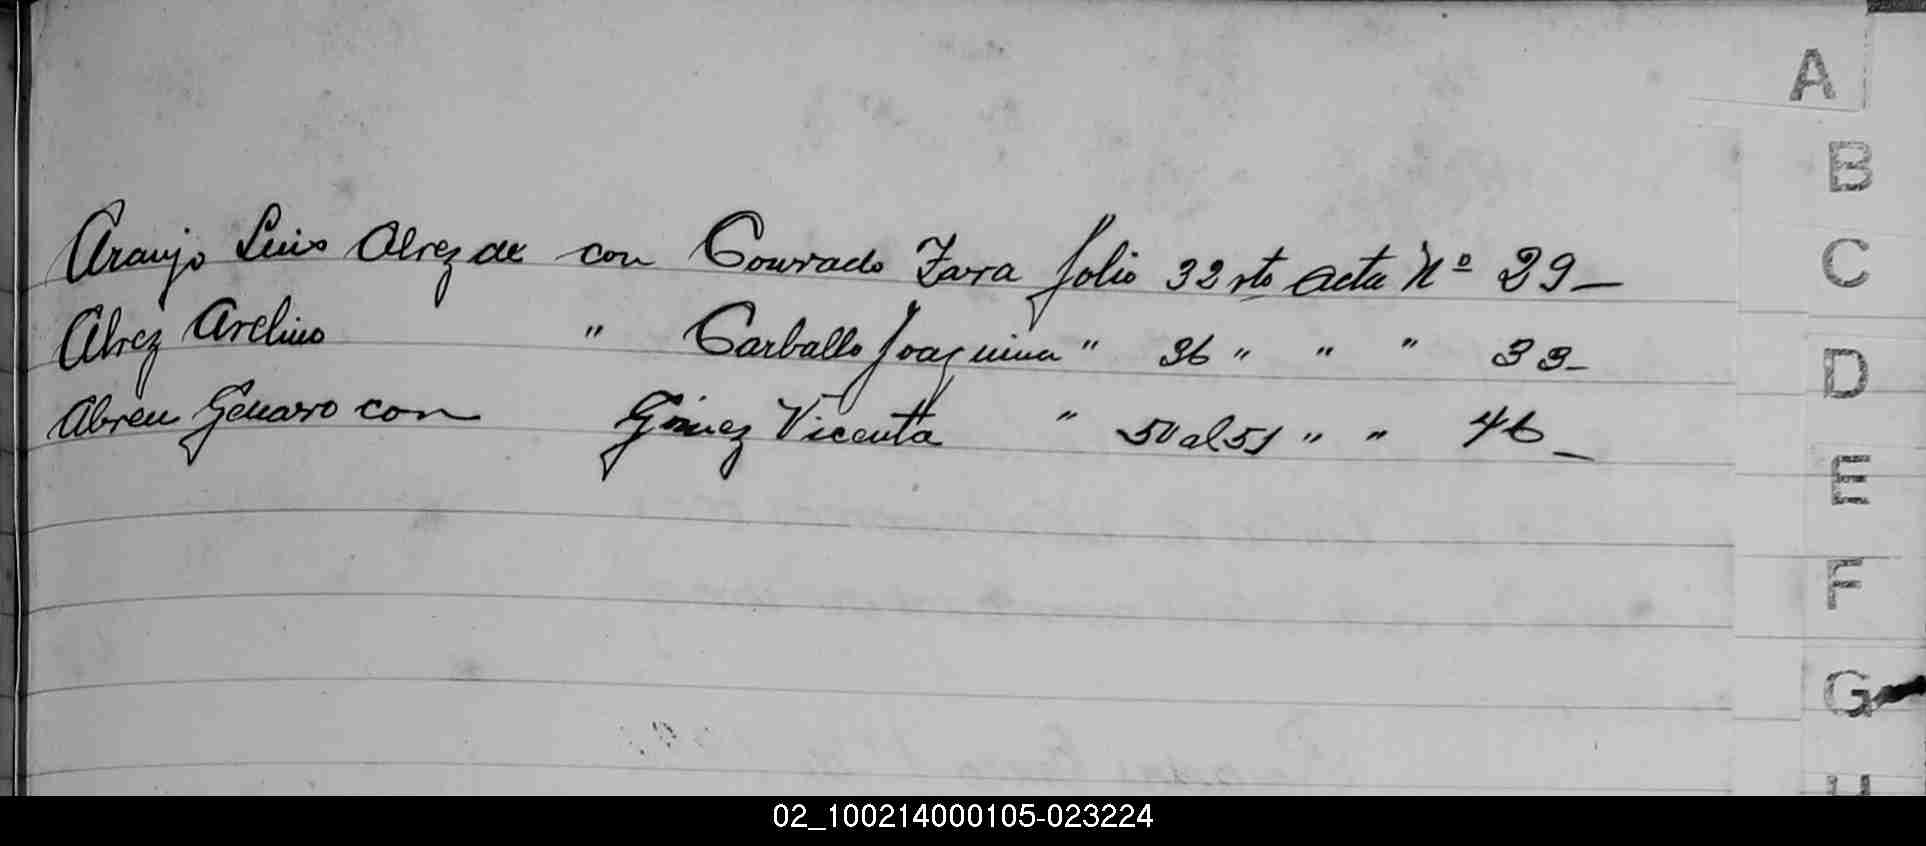 Araujo Luis Alvez de con Conrado Zara folio 32 vto acta Nº 29 —
Alvez Avelino " Carballo Joaquina " 36 " " " 33 -
Abreu Genaro con Gimez Vicenta " 50 al 51 " " 46 _
A
B
C
D
E
F
G
H
02_100214000105-023224